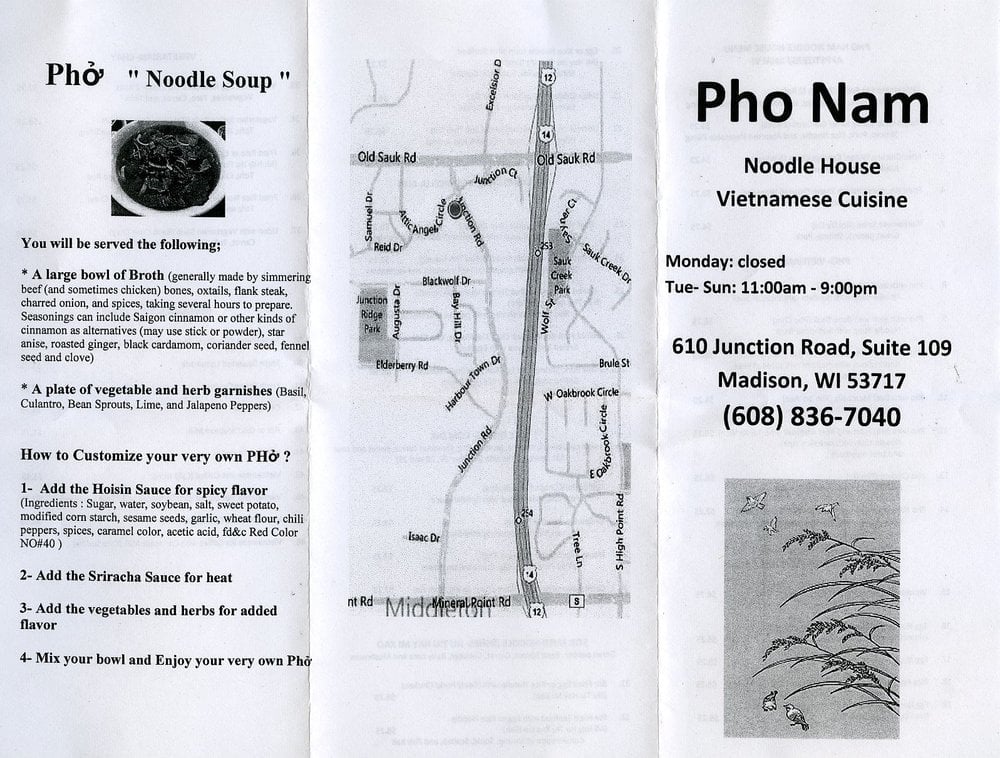 Phở " Noodle Soup "
You will be served the following;
* A large bowl of Broth (generally made by simmering
beef (and sometimes chicken) bones, oxtails, flank steak,
charred onion, and spices, taking several hours to prepare.
Seasonings can include Saigon cinnamon or other kinds of
cinnamon as alternatives (may use stick or powder), star
anise, roasted ginger, black cardamom, coriander seed, fennel
seed and clove)
* A plate of vegetable and herb garnishes (Basil,
Culantro, Bean Sprouts, Lime, and Jalapeno Peppers)
How to Customize your very own PHở ?
1- Add the Hoisin Sauce for spicy flavor
(Ingredients : Sugar, water, soybean, salt, sweet potato,
modified corn starch, sesame seeds, garlic, wheat flour, chili
peppers, spices, caramel color, acetic acid, fd&c Red Color
NO#40 )
2- Add the Sriracha Sauce for heat
3- Add the vegetables and herbs for added
flavor
4- Mix your bowl and Enjoy your very own Phở
Excelsior D
12
14
Old Sauk Rd
Old Sauk Rd
Junction Ct
Samuel Dr
Attic Angel Circle
Junction Rd
Reid Dr
253
Sauk Creek Dr
Sauk
Creek
Park
Blackwolf Dr
Junction
Ridge
Park
Augusta Dr
Bay Hill Dr
Wolf St
Elderberry Rd
Harbour Town Dr
Brule St
W Oakbrook Circle
E Oakbrook Circle
Junction Rd
254
Isaac Dr
Tree Ln
S High Point Rd
14
nt Rd
Middleton
Mineral Point Rd
12
S
Pho Nam
Noodle House
Vietnamese Cuisine
Monday: closed
Tue- Sun: 11:00am - 9:00pm
610 Junction Road, Suite 109
Madison, WI 53717
(608) 836-7040